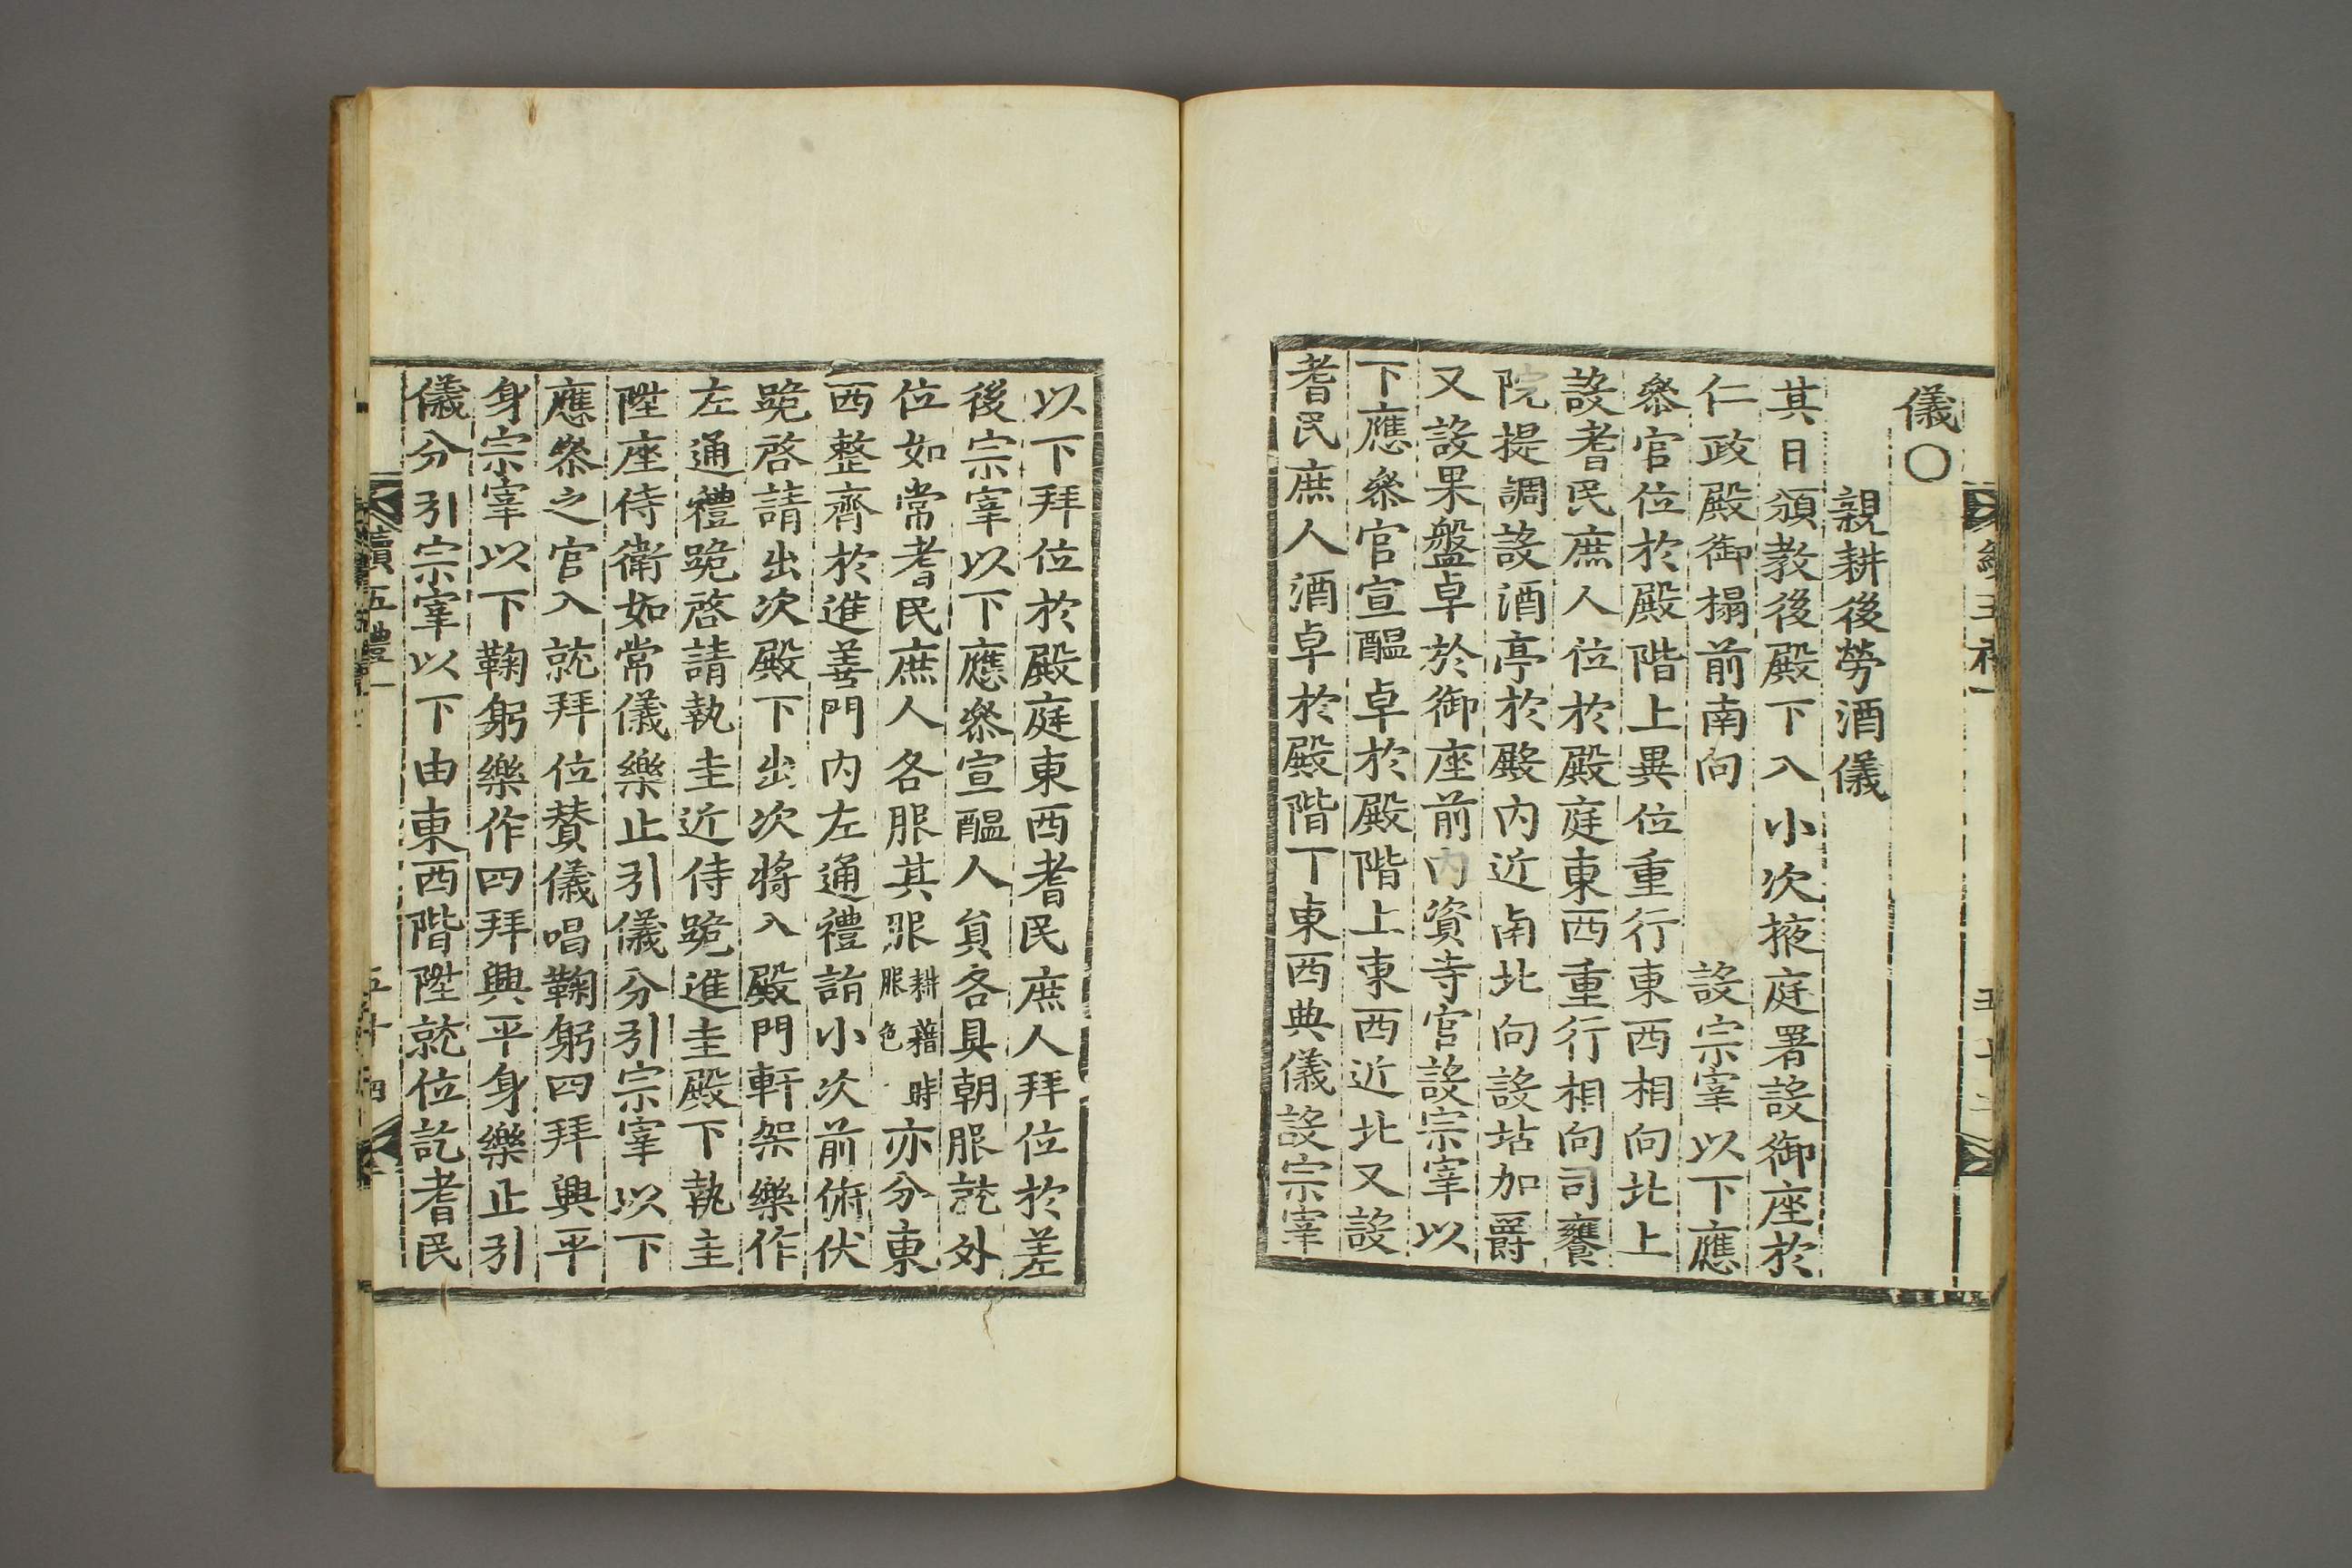 儀○
親耕後勞酒儀
其日頒教後殿下入小次掖庭署設御座於
仁政殿御榻前南向設宗宰以下應
參官位於殿階上異位重行東西相向北上
設耆民庶人位於殿庭東西重行相向司饔
院提調設酒亭於殿內近南北向設坫加爵
又設果盤卓於御座前內資寺官設宗宰以
下應參官宣醞卓於殿階上東西近北又設
耆民庶人酒卓於殿階下東西典儀設宗宰
以下拜位於殿庭東西耆民庶人拜位於差
後宗宰以下應參宣醞人員各具朝服詣外
位如常耆民庶人各服其服耕藉時服色亦分東
西整齊於進善門內左通禮詣小次前俯伏
跪啓請出次殿下出次將入殿門軒架樂作
左通禮跪啓請執圭近侍跪進圭殿下執圭
陞座侍衛如常儀樂止引儀分引宗宰以下
應參之官入就拜位贊儀唱鞠躬四拜興平
身宗宰以下鞠躬樂作四拜興平身樂止引
儀分引宗宰以下由東西階陞就位訖耆民
續五禮一
五十四